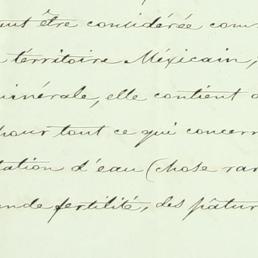 ut être considérée com
territoire Méxicain,
minérale, elle contient d
pour tout ce qui concern
tation d'eau (chose rar
nde fertilité, des pâtur